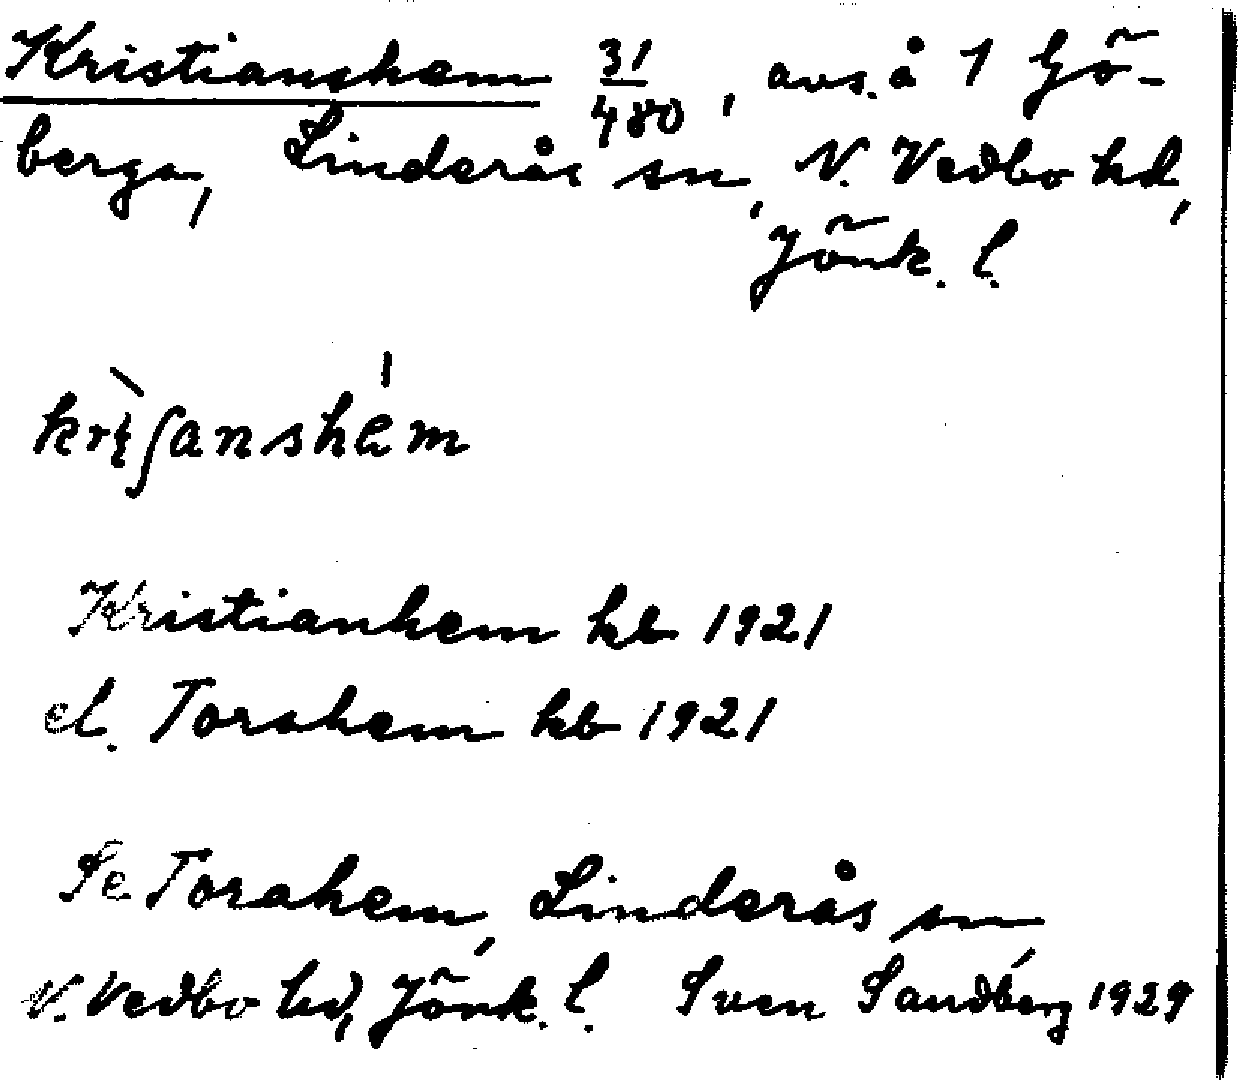 Kristianshem 31/480, avs. å 1 Gö-
berga, Linderås sn, N. Vedbo hd,
Jönk. l.
krìʃanshem
Kristianhem kb 1921
el. Torshem kb 1921
Se Torshem, Linderås sn
N. Vedbo hd, Jönk. l. Sven Sandberg 1929